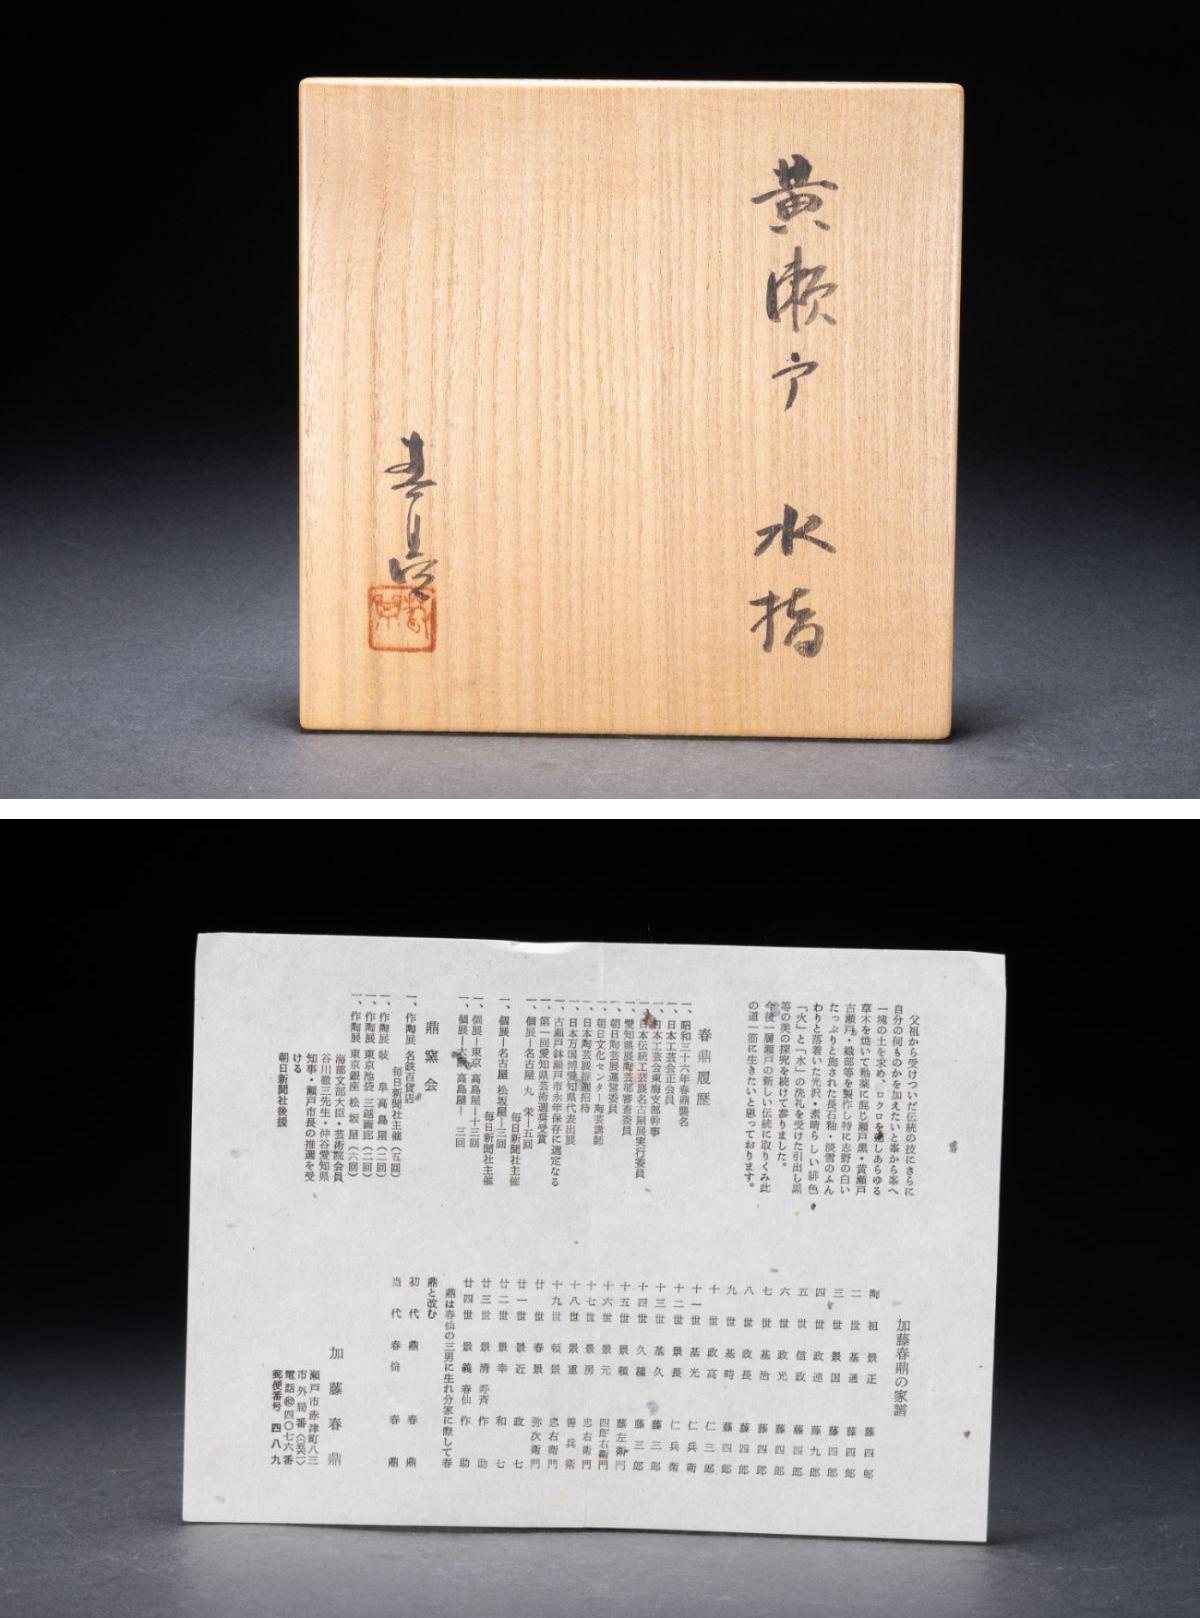 黄瀬戸　水指
春鼎
父祖から受けついだ伝統の技にさらに
自分の何ものかを加えたいと峯から峯へ
一塊の土を求め、ロクロを廻しあらゆる
草木を焼いて釉薬に混じ瀬戸黒・黄瀬戸
古瀬戸・織部等を製作し特に志野の白い
たっぷりと施された長石釉・淡雪のふん
わりと落着いた光沢・素晴らしい緋色
「火」と「水」の洗礼を受けた引出し黒
等の美の探究を続けて参りました。
今後一層瀬戸の新しい伝統に取りくみ此
の道一筋に生きたいと思っております。
春鼎履歴
一、昭和三十六年春鼎襲名
一、日本工芸会正会員
一、日本工芸会東海支部幹事
一、日本伝統工芸展名古屋展実行委員
一、愛知県展陶芸部審査委員
一、朝日陶芸展運営委員
一、朝日文化センター陶芸講師
一、日本陶芸展推選招待
一、日本万国博愛知県代表出展
一、古瀬戸鉢瀬戸市永年保存に選定なる
一、第一回愛知県芸術選奨受賞
一、個展―名古屋 丸栄―五回
毎日新聞社主催
一、個展―名古屋 松坂屋―三回
毎日新聞社主催
一、個展―東京 高島屋―十三回
一、個展―大阪 高島屋―三回
鼎窯会
一、作陶展 名鉄百貨店
毎日新聞社主催（五回）
一、作陶展 岐阜 高島屋（二回）
一、作陶展 東京池袋 三越画廊（二回）
一、作陶展 東京銀座 松坂屋（六回）
海部文部大臣・芸術院会員
谷川徹三先生・仲谷愛知県
知事・瀬戸市長の推選を受
ける
朝日新聞社後援
加藤春鼎の家譜
陶祖 景正 藤四郎
二世 基通 藤四郎
三世 景国 藤四郎
四世 政連 藤九郎
五世 信政 藤四郎
六世 政光 藤四郎
七世 基治 藤四郎
八世 政長 藤四郎
九世 基時 藤四郎
十世 政高 仁三郎
十一世 基光 仁兵衛
十二世 景長 仁兵衛
十三世 基久 藤三郎
十四世 久種 藤三郎
十五世 景頼 藤左衛門
十六世 景元 四郎右衛門
十七世 景房 忠右衛門
十八世 景重 善兵衛
十九世 頼景 忠右衛門
廿世 春景 弥次衛門
廿一世 景近 政七
廿二世 景幸 和七
廿三世 景清 寿斉 作助
廿四世 景義 春仙 作助
鼎は春仙の三男に生れ分家に際して春
鼎と改む
初代 鼎 春鼎
当代 春倫 春鼎
加藤春鼎
瀬戸市赤津町八三
市外局番〈〇五六一〉
電話㉒四〇七六番
郵便番号 四八九